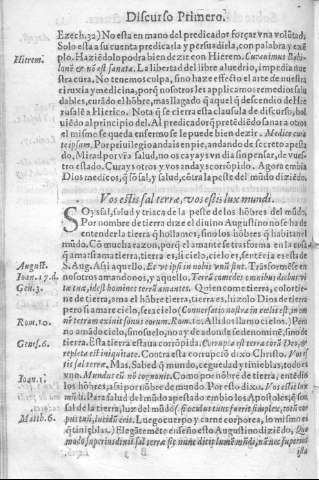 Discurso Primero.
Ezech.32) No esta en mano del predicador forçar vna volūtad,
Solo esta a su cuenta predicarla y persuadirla, con palabra y exē
plo. Haziēdolo podra bien dezir con Hierem. Curauimus Babi-
Hierem.
lonē & nō est sanata. La libertad del libre aluedrio, impedia nue
stra cura. No tenemos culpa, sino haze effecto el arte de nuestra
cirurxia y medicina, porq̄ nosotros les applicamos remedios salu
dables, curādo el hōbre, mas llagado q̄ aquel q̄ descendio de Hie
rusalē a Hierico. Nota q̄ se cierra esta clausula de discurso, bol
uiēdo al principio del. Al predicador q̄ pretēdiēdo sanar a otros
el mismo se queda enfermo se le puede bien dezir. Medice cura
teipsum. Por priuilegio andais en pie, andando de secreto apesta
do, Mirad por vr̄a salud, no os cayays vn dia sin pensar, de vues-
tro estado. Curays otros y vos andays corrōpido. Agora embia
Dios medicos, q̄ sō sal, y salud, cōtra la peste del mūdo diziēdo.
Vos estis sal terræ, vos estis lux mundi.
Soys sal, salud y triaca de la peste de los hōbres del mūdo,
Por nombre de tierra dize el diuino Augustino no se ha de
entender la tierra q̄ hollamos, sino los hōbres q̄ habitan el
mundo. Cō mucha razon, porq̄ el amante se trasforma en la cosa
q̄ ama: si ama tierra, tierra es, si cielo, cielo es, sentēcia es esta de
August.
S. Aug. Assi aquello. Et vt ipsi in nobis vnū sint. Trasformēse en
Ioan.17.d.
nosotros amandonos, y aquello, Terrā comedes
Gen.3.
tu tuæ, idest homines terrā amantes. Quien come tierra, colorie-
ne de tierra, ama el hōbre tierra, tierra es, hizolo Dios de tierra
pero si amare cielo, sera cielo (Conuersatio nostra in cælis est,
Rom.10.
Rom.10. Alli do vlamo cielos.) Pero
no amādo cielo, sino suelo, no ay de adonde se denomine, sino de
tierra. Esta tierra estaua corrōpida. Corrupta est terra corā Deo, &
Genes.6.
repleta est iniquitate. Contra esta corrupciō dixo Christo. Vos es
tis sal terræ. Mas. Sabed q̄ mundo, ceguedad y tinieblas, todo es
Ioan.1.
vno. Mundus eū nō cognouit. Como por nōbre de tierra, entēdio
los hōbres, assi por nōbre de mundo. Por esto dixo. Vos estis lux
mūdi. Para salud del mūdo apestado embio los Apostoles, q̄ son
sal de la tierra, luz del mūdo (si oculus tuus fuerit simplex, totū cor
Matth.6.
pus tuū, lucidū erit. Luego cuerpo y carne corporea, lo mismo es
q̄ tinieblas.) Elegātemēte enseño esto Augustino diziēdo, Quo
modo superius dixit sal terræ sic nunc dicit lumē mūdi, nā nec superius
ista